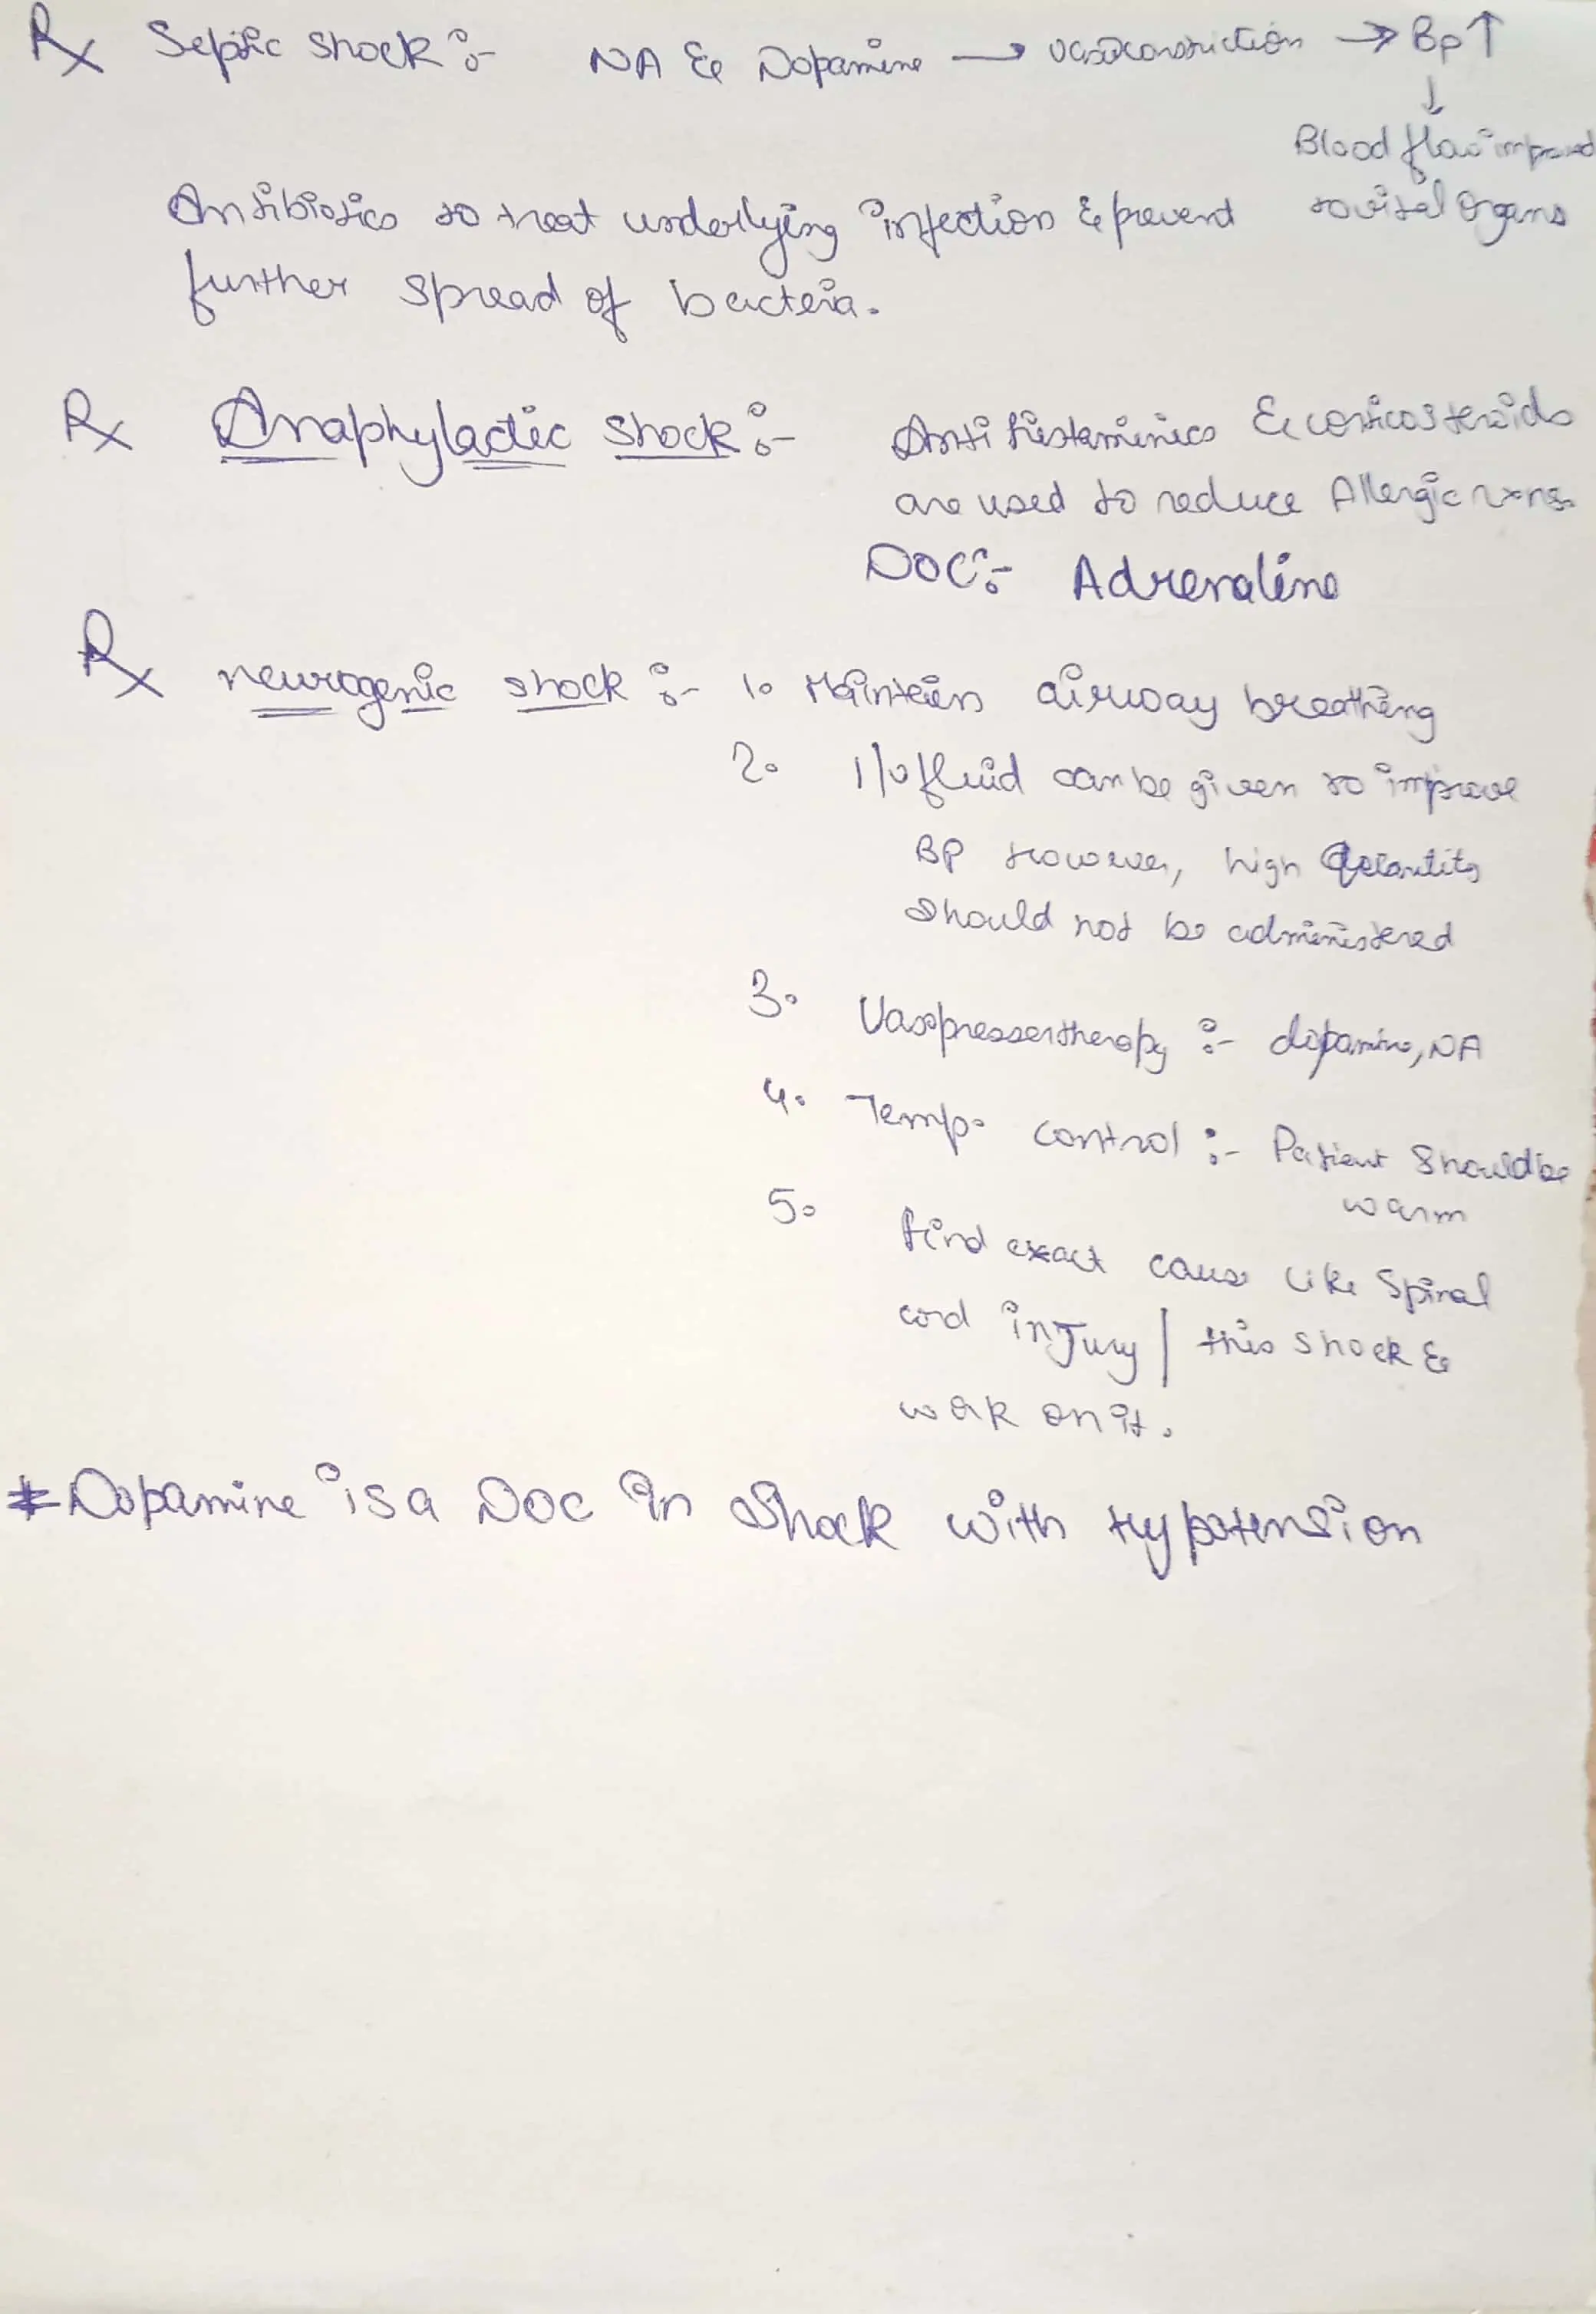 Rx Septic shock :- NA & Dopamine → vasoconstriction → Bp↑
↓
Blood flow improved
to vital organs
Antibiotics to treat underlying infection & prevent
further spread of bacteria.
Rx Anaphylactic shock :- Anti histaminics & corticosteroids
are used to reduce Allergic rxns.
DOC :- Adrenaline
Rx neurogenic shock :- 1. Maintain airway breathing
2. I/v fluid can be given to improve
BP However, high Quantity
should not be administered
3. Vasopressor therapy :- dopamine, NA
4. Temp. control :- Patient should be
warm
5. find exact cause like Spinal
cord injury / this shock &
work on it.
* Dopamine is a DOC in shock with Hypotension